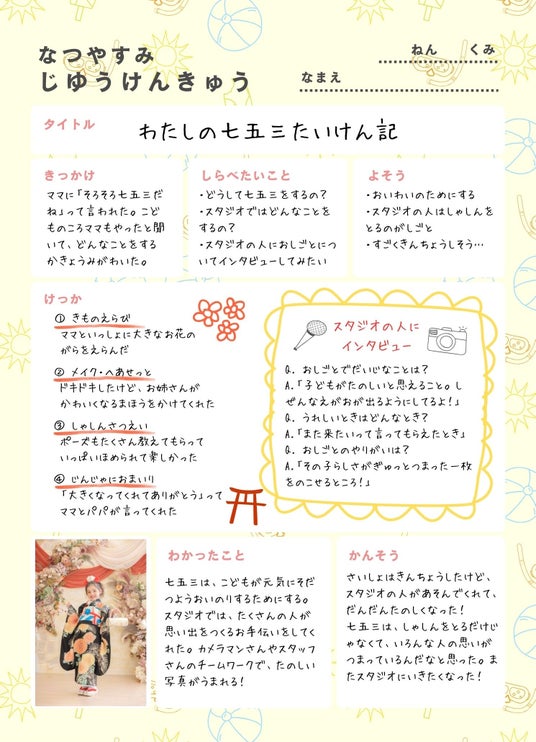 なつやすみ
じゆうけんきゅう
ねん くみ
なまえ
タイトル
わたしの七五三たいけん記
きっかけ
ママに「そろそろ七五三だ
ね」って言われた。こど
ものころママもやったと聞
いて、どんなことをする
かきょうみがわいた。
しらべたいこと
・どうして七五三をするの？
・スタジオではどんなことを
するの？
・スタジオの人におしごとにつ
いてインタビューしてみたい
よそう
・おいわいのためにする
・スタジオの人はしゃしんを
とるのがしごと
・すごくきんちょうしそう…
けっか
① きものえらび
ママといっしょに大きなお花の
がらをえらんだ
② メイク・ヘあせっと
ドキドキしたけど、お姉さんが
かわいくなるまほうをかけてくれた
③ しゃしんさつえい
ポーズもたくさん教えてもらって
いっぱいほめられて楽しかった
④ じんじゃにおまいり
「大きくなってくれてありがとう」って
ママとパパが言ってくれた
スタジオの人に
インタビュー
Q. おしごとでだいじなことは？
A.「子どもがたのしいと思えること。し
ぜんなえがおが出るようにしてるよ！」
Q. うれしいときはどんなとき？
A.「また来たいって言ってもらえたとき」
Q. おしごとのやりがいは？
A.「その子らしさがぎゅっとつまった一枚
をのこせるところ！」
わかったこと
七五三は、こどもが元気にそだ
つようおいのりするためにする。
スタジオでは、たくさんの人が
思い出をつくるお手伝いをしてく
れた。カメラマンさんやスタッフ
さんのチームワークで、たのしい
写真がうまれる！
かんそう
さいしょはきんちょうしたけど、
スタジオの人があそんでくれて、
だんだんたのしくなった！
七五三は、しゃしんをとるだけじ
ゃなくて、いろんな人の思いが
つまっているんだなと思った。ま
たスタジオにいきたくなった！